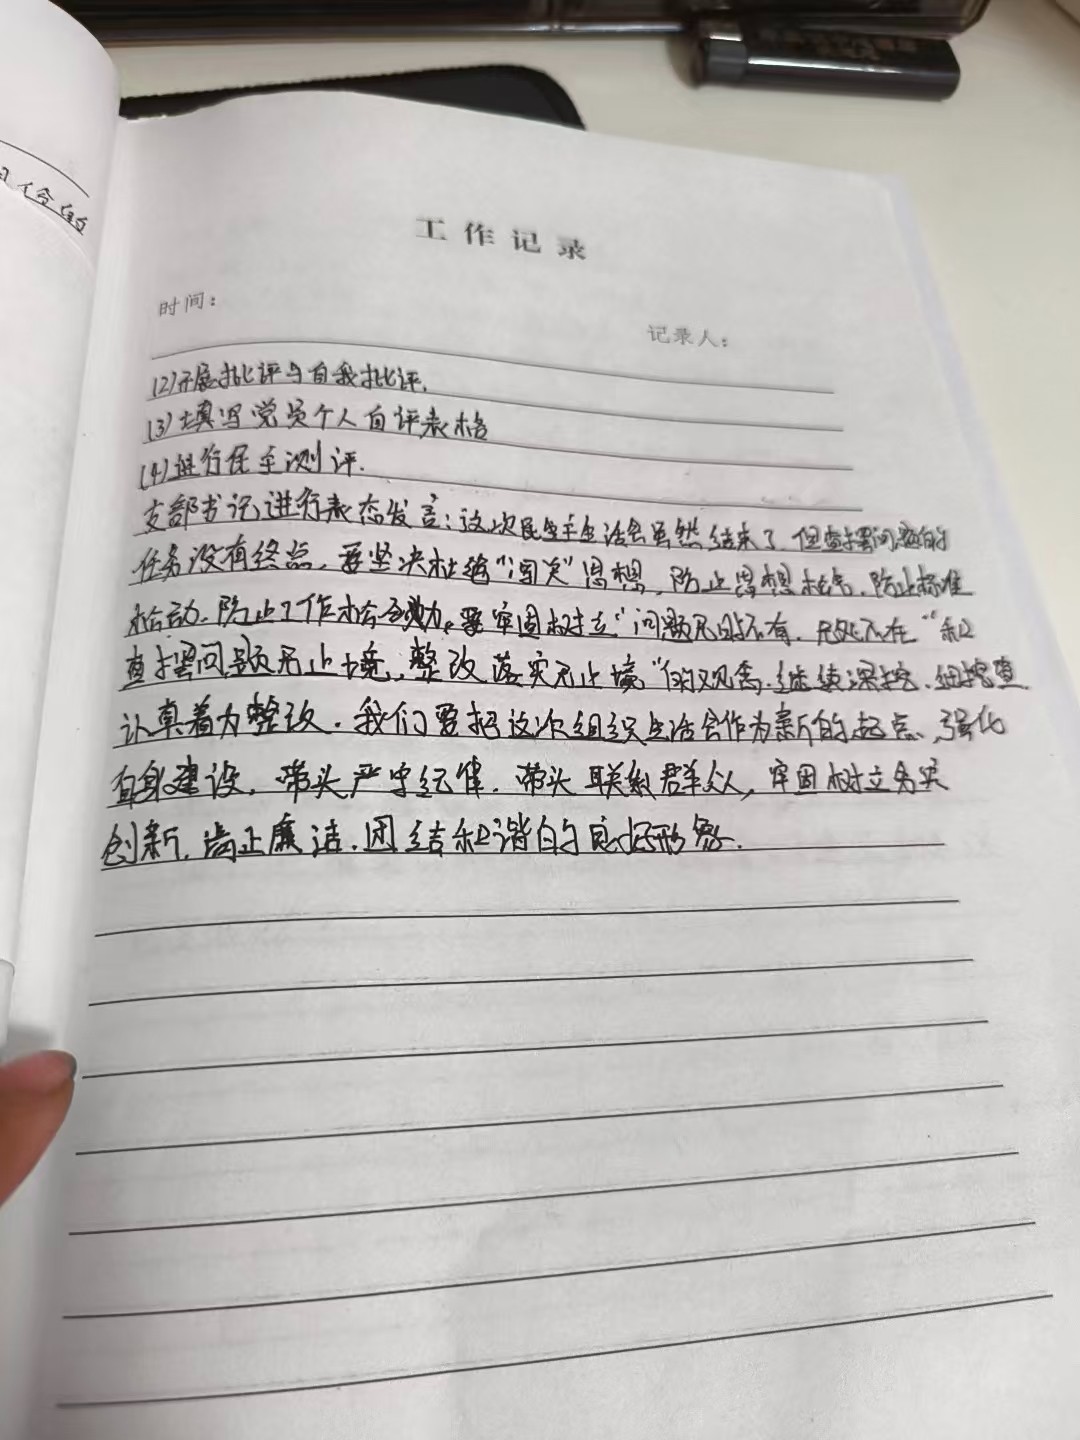 工作记录
时间:
记录人:
(2)开展批评与自我批评.
(3)填写党员个人自评表格
(4)进行民主测评.
支部书记进行表态发言:这次民主生活会虽然结束了,但查摆问题的
任务没有终点,要坚决杜绝“过关”思想,防止思想松,防止标准
松动,防止工作松劲。要牢固树立“问题无时不有,无处不在”和
查摆问题无止境,整改落实无止境”的观念.继续深挖.细挖查
认真着力整改.我们要把这次组织生活会作为新的起点,强化
自身建设,带头严守纪律.带头联系群众,牢固树立务实
创新,尚正廉洁.团结和谐的良好形象.